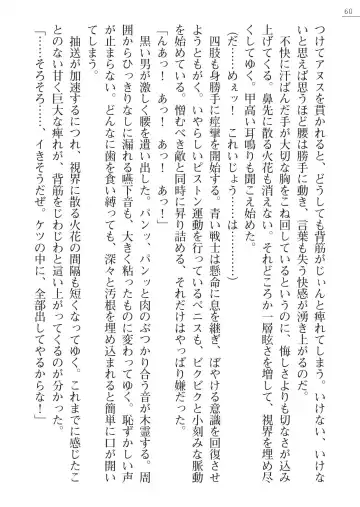 60
つけてアヌスを貫かれると、どうしても背筋がじぃんと痺れてしまう。いけない、いけな
いと思えば思うほど腰は勝手に動き、言葉も失う快感が湧き上がるのだ。
不快に汗ばんだ手が大切な胸をこね回しているというのに、悔しさよりも切なさが込み
上げてくる。鼻先に散る火花も消えない。それどころか一層眩さを増して、視界を埋め尽
くしてゆく。甲高い耳鳴りも聞こえ始めた。
（だ……めぇッ！　これいじょう……は………）
四肢も身勝手に痙攣を開始する。青い戦士は懸命に息を継ぎ、ぼやける意識を回復させ
ようともがく。いやらしいピストン運動を行っているペニスも、ビクビクと小刻みな脈動
を始めている。憎むべき敵と同時に昇り詰める、それだけはやっぱり嫌だった。
「んあっ！　あっ！　あっ！　あっ！」
黒い男が激しく腰を遣い出した。パンッ、パンッと肉のぶつかり合う音が木霊する。周
囲からひっきりなしに漏れる嚥下音も、大きく粘ったものに変わってゆく。恥ずかしい声
が止まらない。どんなに歯を食い縛っても、深々と汚根を埋め込まれると簡単に口が開い
てしまう。
抽送が加速するにつれ、視界に散る火花の間隔も短くなってゆく。これまでに感じたこ
とのない甘く巨大な痺れが、背筋をじわじわと這い上がってくるのが分かった。
「……そろそろ……、イきそうだぜ。ケツの中に、全部出してやるからな！」